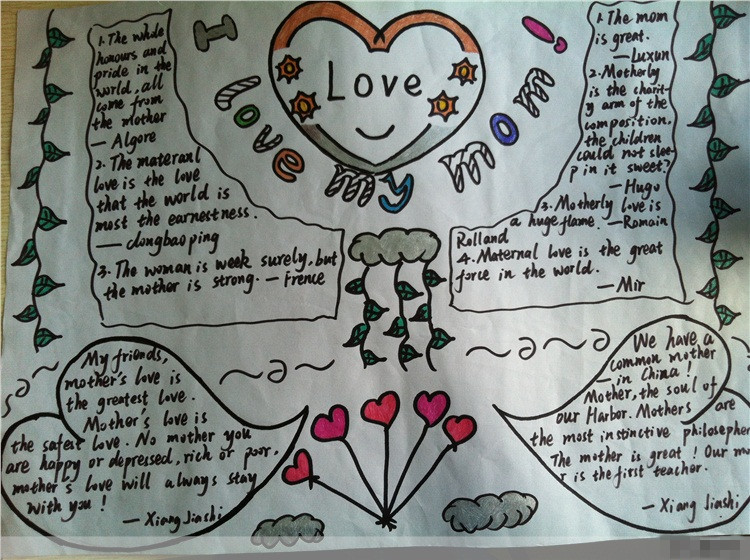 I Love my mom!
Love
1. The whole
honours and
pride in the
world, all
come from
the mother
— Algore
2. The materanl
love is the love
that the world is
most the earnestness.
— dongbaoping
3. The woman is week surely, but
the mother is strong. — Frence
1. The mom
is great.
— Luxun
2. Motherly
is the charit-
y arm of the
composition,
the children
could not slee-
p in it sweet?
— Hugo
3. Motherly love is
a huge flame. — Romain
Rolland
4. Maternal love is the great
force in the world.
— Mir
My friends,
mother's love is
the greatest love.
Mother's love is
the safest love. No mother you
are happy or depressed, rich or poor,
mother's love will always stay
with you!
— Xiang Jiashi
We have a
common mother
— in China!
Mother, the soul of
our Harbor. Mothers are
the most instinctive philosepher
The mother is great! Our mo
r is the first teacher.
— Xiang Jiashi